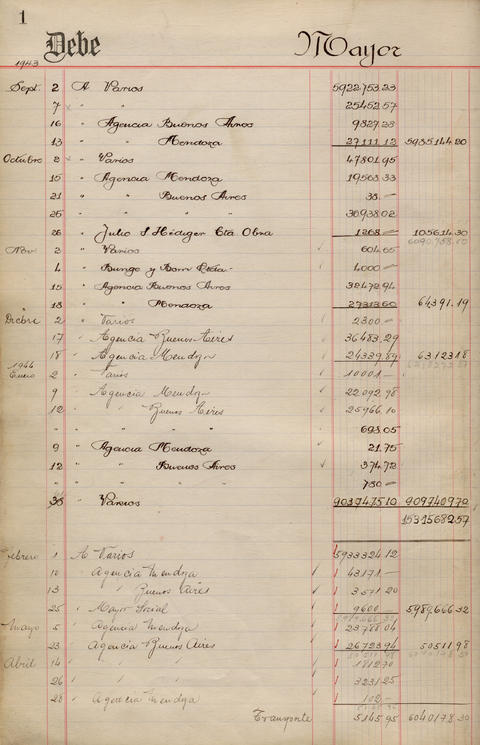 1
Debe Mayor
1943
Sept. 2 A Varios 5922753.23
7 " " 25452.57
16 " Agencia Buenos Aires 9827.28
13 " " Mendoza 27111.12 5985144.20
Octubre 2 " Varios 47801.95
15 " Agencia Mendoza 19503.33
21 " " Buenos Aires 38.—
25 " " " " 36938.02
26 " Julio S. Hediger Cta Obra 1268.— 105614.30
6090758.50
Nov. 2 " Varios 604.65
4 " Bunge y Born Ltda. 4000.—
15 " Agencia Buenos Aires 32472.94
18 " " Mendoza 27313.60 64391.19
Dicbre 2 " Varios 2300.—
17 " Agencia Buenos Aires 36483.29
18 " Agencia Mendoza 24339.89 63123.18
Enero 2 " Varios 10001.—
9 " Agencia Mendoza 22092.98
12 " " Buenos Aires 25966.10
" " " " 693.05
9 " Agencia Mendoza 21.75
12 " " Buenos Aires 374.72
" " " " 730.—
" Varios 9037475.10 9097409.70
15315682.57
Febrero 1 A Varios 5933324.12
10 " Agencia Mendoza 43171.—
13 " " Buenos Aires 3571.20
25 " Mayor Social 9600.— 5989666.32
Mayo 5 " Agencia Mendoza 23788.04
23 " Agencia Buenos Aires 26723.94 50511.98
Abril 14 " " " 1812.70
26 " " " 3231.25
28 " Agencia Mendoza 102.—
Transporte 5145.95 6040178.30